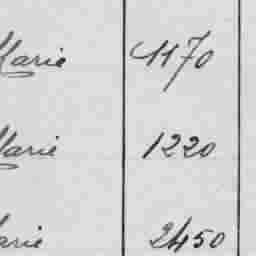 Marie 1170
Marie 1220
Marie 2450